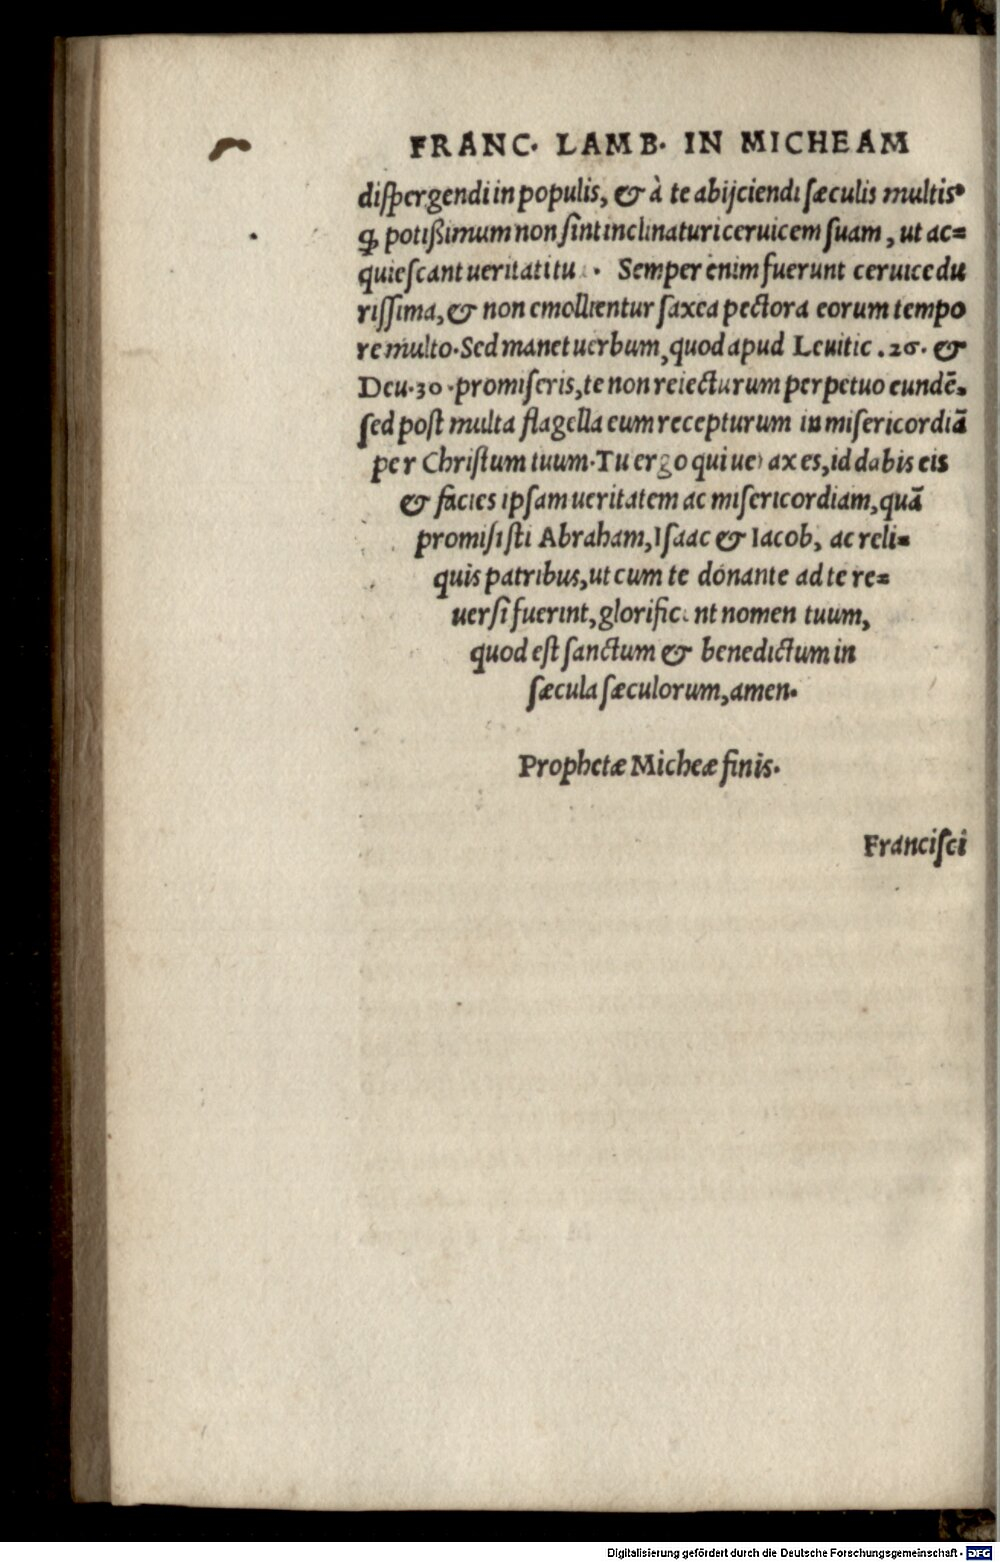 FRANC. LAMB. IN MICHEAM
diſpergendi in populis, & à te abijciendi ſæculis multis.
ꝙ potißimum non ſint inclinaturi ceruicem ſuam, ut ac=
quieſcant ueritati tu. Semper enim fuerunt ceruice du
riſſima, & non emollientur ſaxea pectora eorum tempo
re multo. Sed manet uerbum, quod apud Leuitic. 26. &
Deu. 30. promiſeris, te non reiecturum perpetuo eundē.
ſed poſt multa flagella eum recepturum in miſericordiā
per Chriſtum tuum. Tu ergo qui uerax es, id dabis eis
& facies ipſam ueritatem ac miſericordiam, quā
promiſiſti Abraham, Iſaac & Iacob, ac reli=
quis patribus, ut cum te donante ad te re=
uerſi fuerint, glorificent nomen tuum,
quod eſt ſanctum & benedictum in
ſæcula ſæculorum, amen.
Prophetæ Micheæ finis.
Franciſci
Digitalisierung gefördert durch die Deutsche Forschungsgemeinschaft - DFG